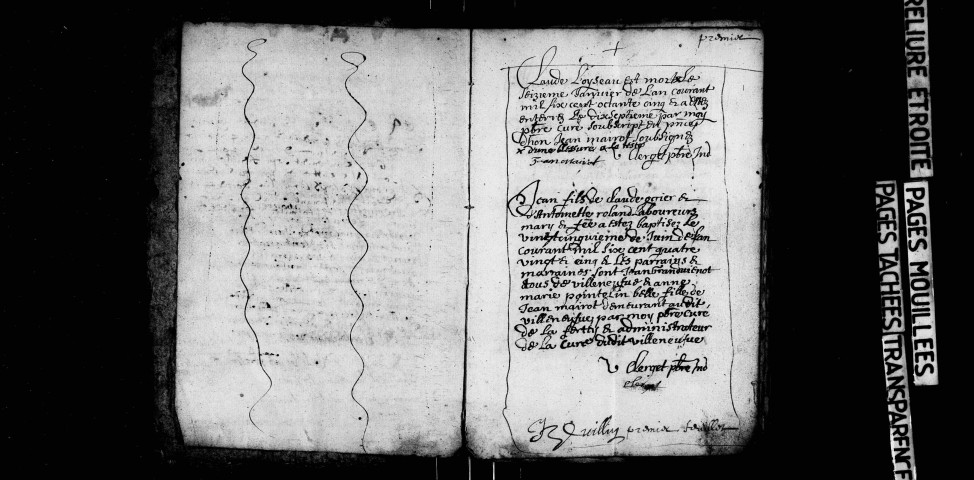 premier
Claude Loyseau est mort le
seizieme Janvier de Lan courant
mil six cent octante cinq & a esté
enterré Le dixseptieme par moy
pbre Curé soubscript en
Jean mairot soubsigné
a la teste
J mairot Clerget pbre Ind
Jean fils de claude ogier &
d'Antoinette roland Laboureurs
mary & fee a estez baptisez Le
vingtcinquieme de Juin de Lan
courant mil six cent quatre
vingt & cinq & Les parrains &
marraines sont Jean
tous de villeneufve & anne
marie pointelin belle fille de
Jean mairot demeurant audit
villeneufve par moy pbre Curé
de La ferté & administrateur
de La Cure dudit villeneufve
Clerget pbre Ind
premier feuillet
RELIURE ETROITE
PAGES MOUILLEES
PAGES TACHEES TRANSPARENCE